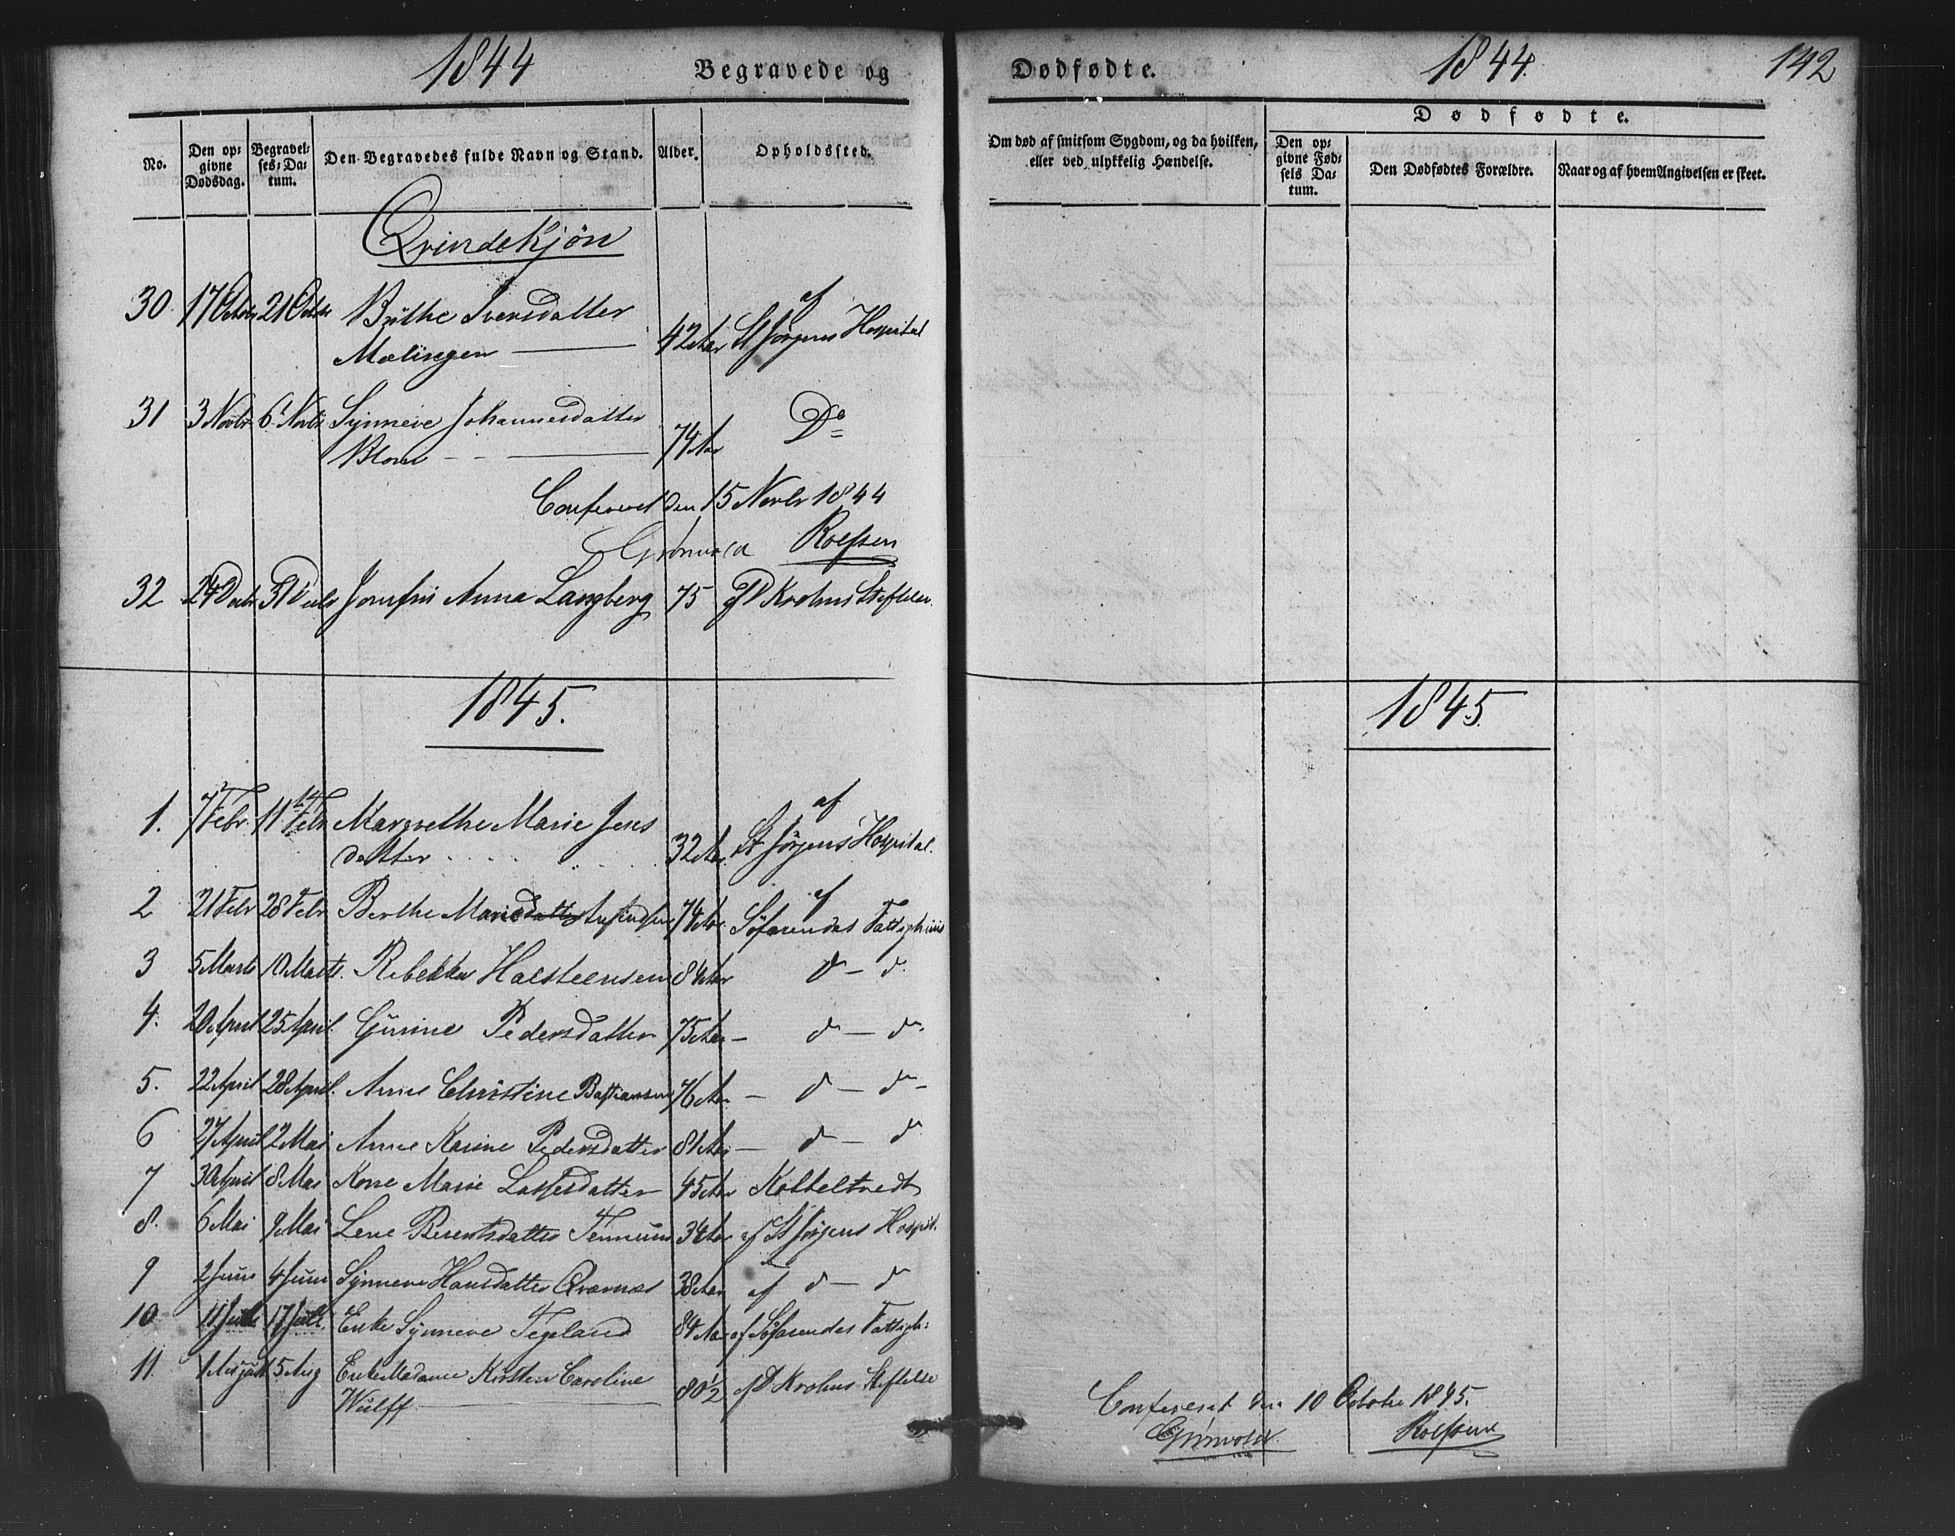 1844 Begravede og
No. Den opgivne Dødsdag. Begravelses-Datum. Den Begravedes fulde Navn og Stand. Alder. Opholdssted.
Qvindekjøn
30 17 Octbr 21 Octbr Brithe Iversdatter af
Mælingen 42 Aar St Jørgens Hospital
31 3 Novbr 6 Novbr Synneve Johannesdatter Do
74 Aar
Confereret den 15 Novbr 1844
Grønvold Rolfsen
32 24 Decbr 31 Decbr Anna Langberg 75 af D Krohns Stiftelse
1845.
1. 7 Febr 11 Febr Margrethe Marie Jens af
datter 32 Aar St Jørgens Hospital.
2 21 Febr 28 Febr Berthe Marie 74 Aar af Søfarendes Fattighuus
3 5 Marts 10 Marts. Rebekka Halsteensen 84 Aar d - d
4. 20 April 25 April. Gurine Pedersdatter 75 Aar - do - do
5. 22 April 28 April. Anne Christine Bastiansen 76 Aar - d - do -
6 27 April 2 Mai Anne Karine Pedersdatter 81 Aar - d - do
7 30 April 8 Mai Kone Marie Lassesdatter 45 Aar Kobbeltvedt
8. 6 Mai 9 Mai Lene Berentsdatter 34 Aar af St Jørgens Hospit.
9 2 Juni 4 Juni Synneve Hansdatter Qvamnæs 38 Aar af d - d
10 11 Juli 17 Juli Enke Synneve Tegeland 84 Aar af Søfarendes Fattigh:
11. 1 August 5 Aug Enke Madame Kirsten Caroline
Wulff 80 1/2 af D Krohns Stiftelse
Dødfødte. 1844. 142
Dødfødte.
Om død af smitsom Sygdom, og da hvilken, eller ved ulykkelig Hændelse. Den opgivne Fødsels Datum. Den Dødfødtes Forældre. Naar og af hvem Angivelsen er skeet.
1845.
Confereret den 10 October 1845.
Grønvold Rolfsen